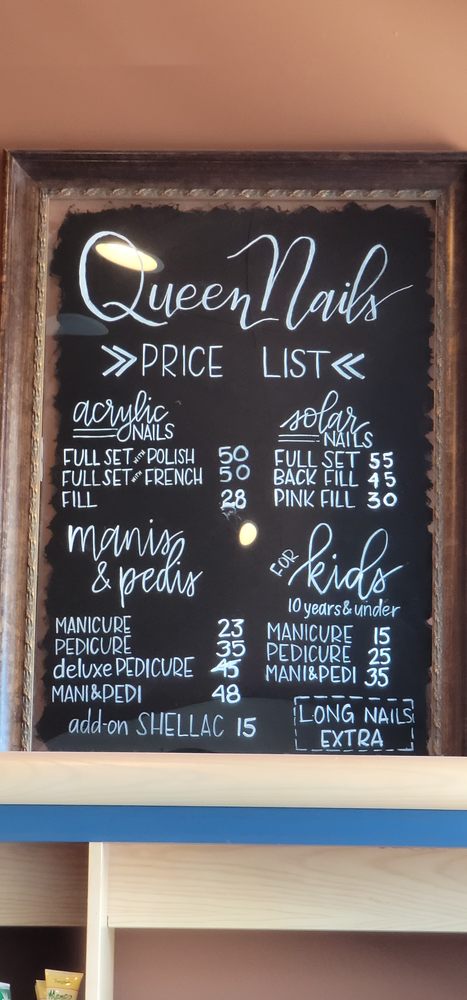 Queen Nails
PRICE LIST
acrylic
NAILS
FULL SET WITH POLISH 50
FULL SET WITH FRENCH 50
FILL 28
solar
NAILS
FULL SET 55
BACK FILL 45
PINK FILL 30
manis
& pedis
MANICURE 23
PEDICURE 35
deluxe PEDICURE 45
MANI&PEDI 48
add-on SHELLAC 15
FOR kids
10 years & under
MANICURE 15
PEDICURE 25
MANI&PEDI 35
LONG NAILS
EXTRA